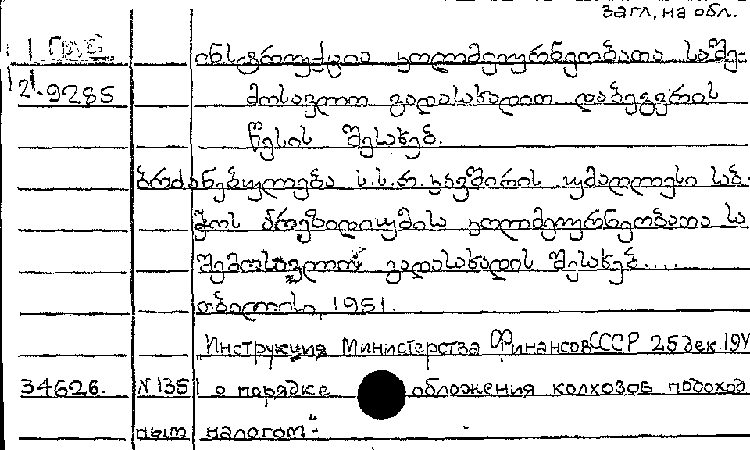 загл, на обл.
ინსტრუქცია კოლმეურნეობათა საშე-
12-9285
მოსავლო გადასახადით დაბეგვრის
წესის შესახებ.
ბრძანებულება ს.ს.რ. კავშირის უმაღლესი საბ-
ჭოს პრეზიდიუმისა კოლმეურნეობათა სა
შემოსავლო გადასახადის შესახებ....
თბილისი, 1951.
Инструкция Министерства Финансов СССР 25 дек. 194
34626. N 135 о порядке обложения колхозов подоход
ным налогом"-